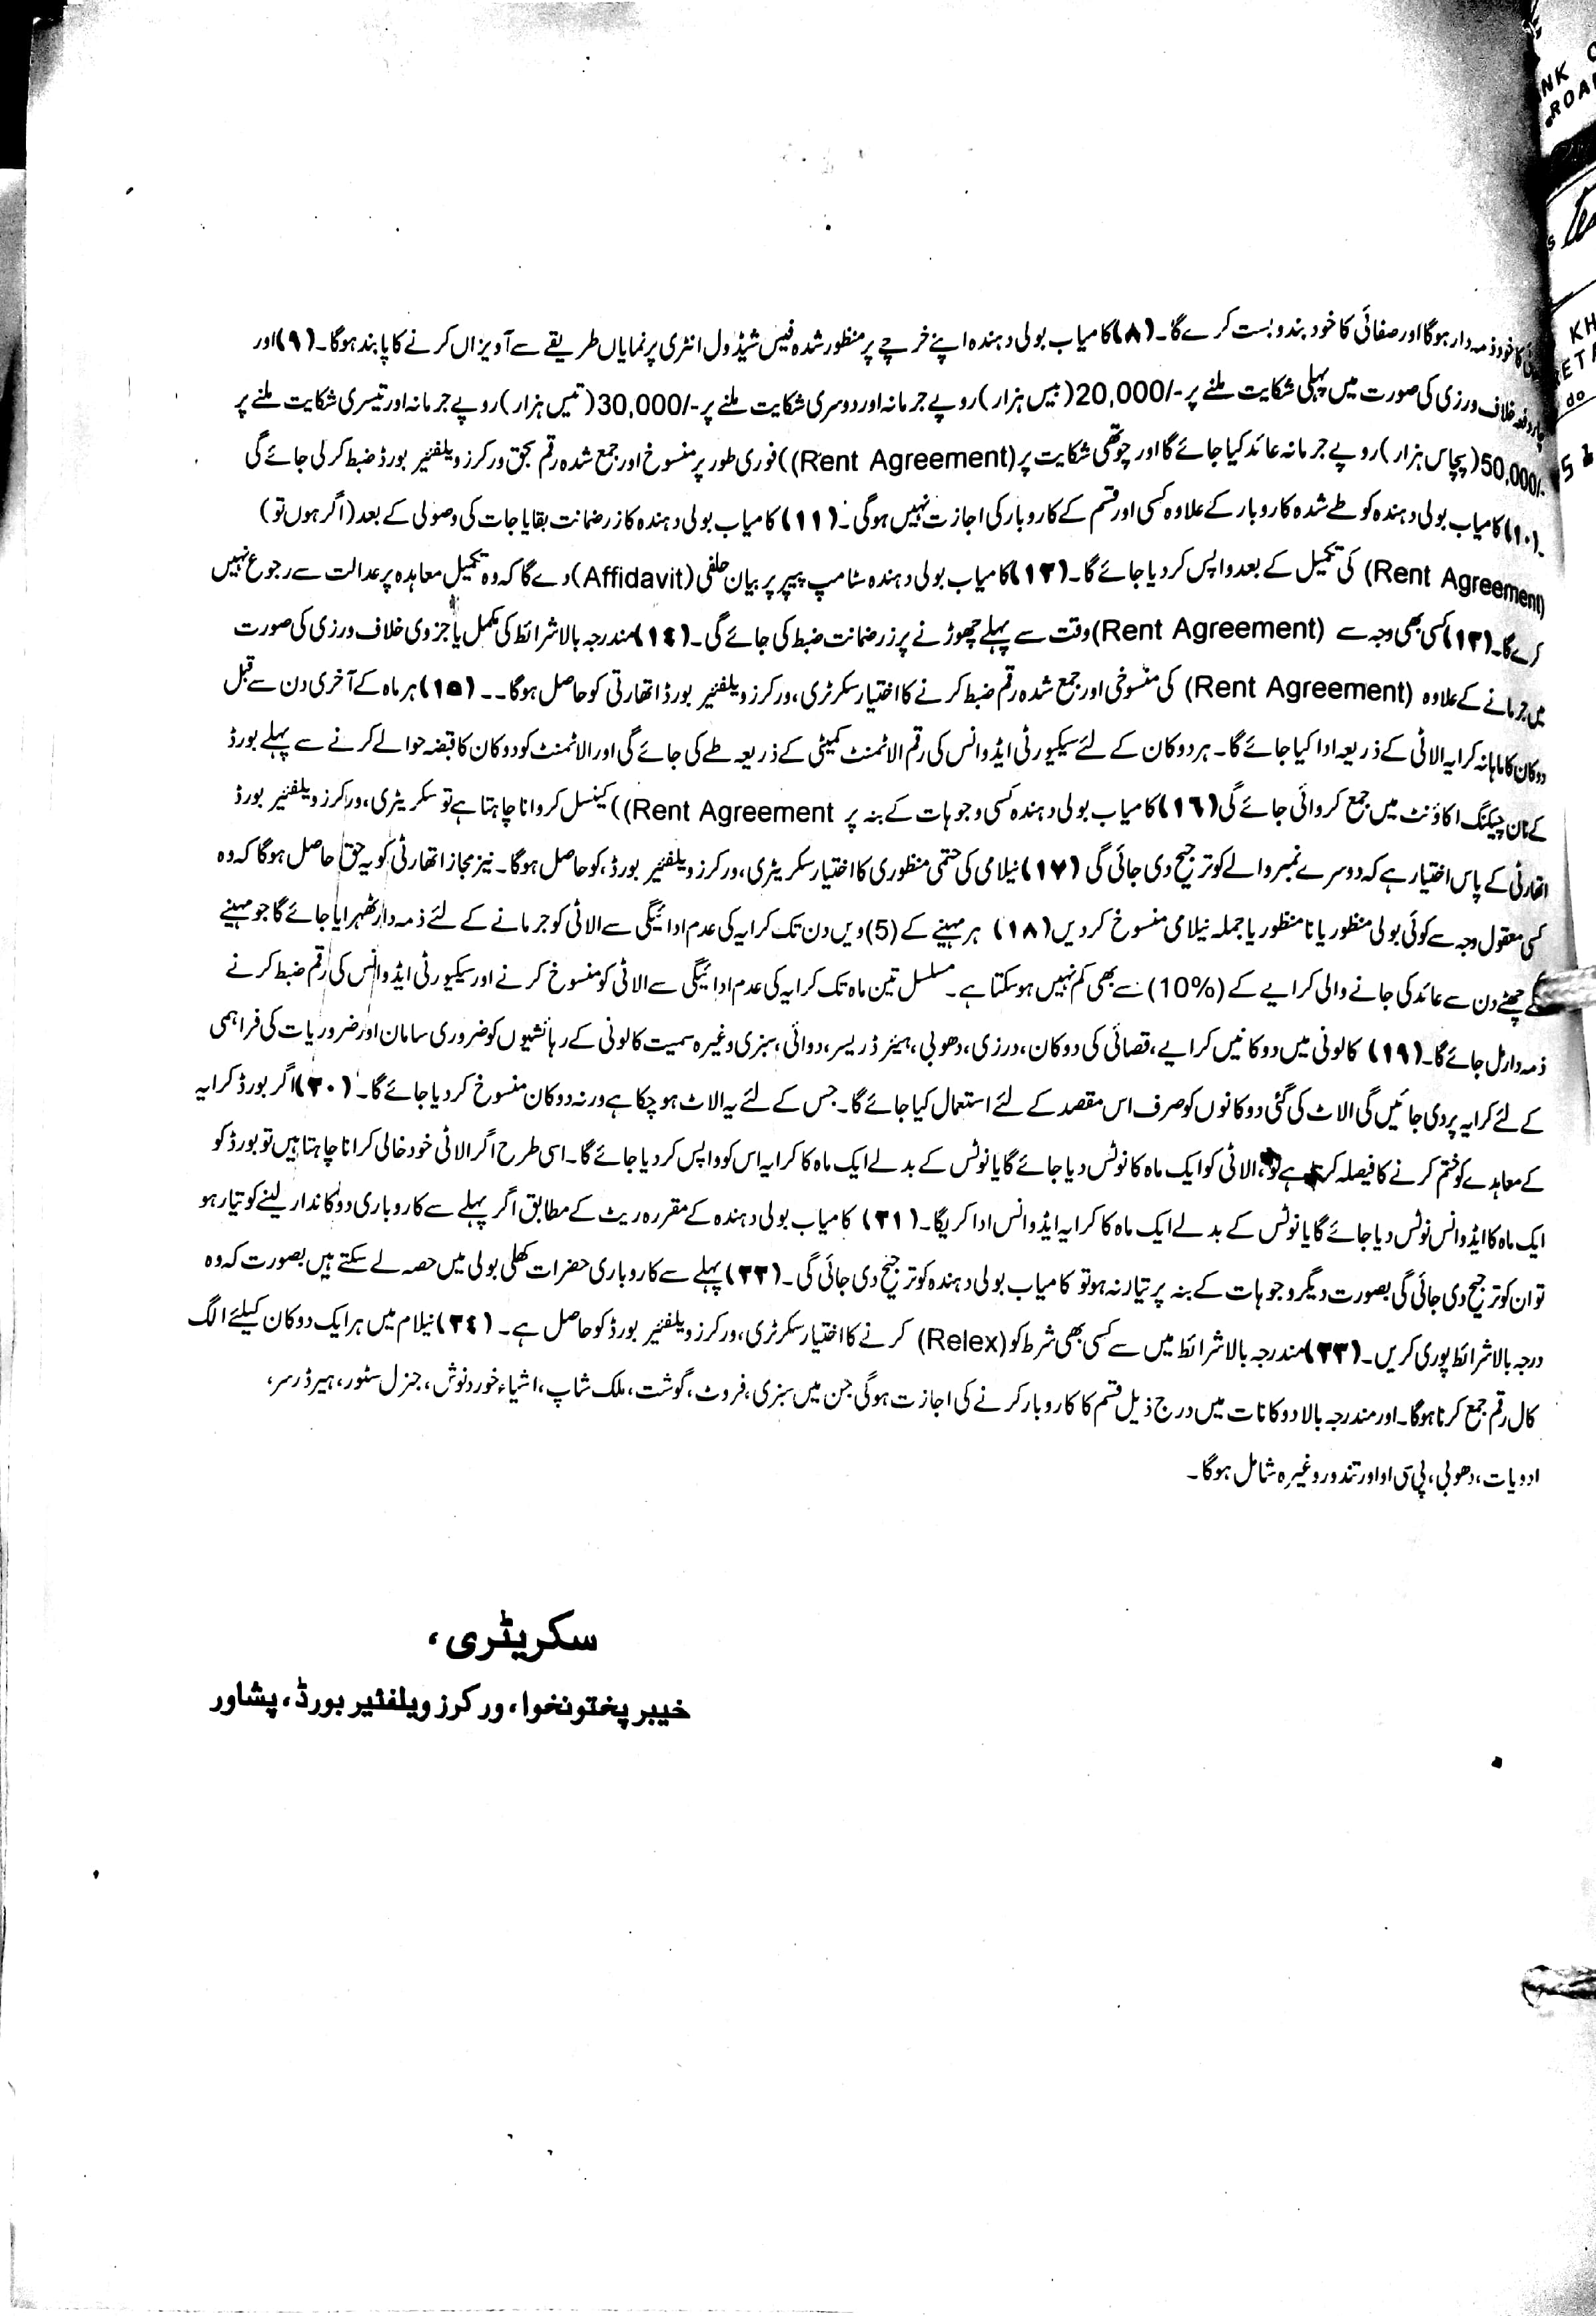 کا خود ذمہ دار ہوگا اور صفائی کا خود بندوبست کرے گا۔ (۸) کامیاب بولی دہندہ اپنے خرچے پر منظور شدہ فیس شیڈول انٹری پر نمایاں طریقے سے آویزاں کرنے کا پابند ہوگا۔ (۹) اور
خلاف ورزی کی صورت میں پہلی شکایت ملنے پر -/20,000 (بیس ہزار) روپے جرمانہ اور دوسری شکایت ملنے پر -/30,000 (تیس ہزار) روپے جرمانہ اور تیسری شکایت ملنے پر
-/50,000 (پچاس ہزار) روپے جرمانہ عائد کیا جائے گا اور چوتھی شکایت پر (Rent Agreement)) فوری طور پر منسوخ اور جمع شدہ رقم بحق ورکرز ویلفئیر بورڈ ضبط کر لی جائے گی
۔(۱۰) کامیاب بولی دہندہ کو طے شدہ کاروبار کے علاوہ کسی اور قسم کے کاروبار کی اجازت نہیں ہوگی ۔ (۱۱) کامیاب بولی دہندہ کا زر ضمانت بقایا جات کی وصولی کے بعد (اگر ہوں تو)
(Rent Agreement) کی تکمیل کے بعد واپس کر دیا جائے گا۔ (۱۲) کامیاب بولی دہندہ سٹامپ پیپر پر بیان حلفی (Affidavit) دے گا کہ وہ تکمیل معاہدہ پر عدالت سے رجوع نہیں
کرے گا۔ (۱۳) کسی بھی وجہ سے (Rent Agreement) وقت سے پہلے چھوڑنے پر زر ضمانت ضبط کی جائے گی۔ (۱٤) مندرجہ بالا شرائط کی مکمل یا جزوی خلاف ورزی کی صورت
میں جرمانے کے علاوہ (Rent Agreement) کی منسوخی اور جمع شدہ رقم ضبط کرنے کا اختیار سکرٹری، ورکرز ویلفئیر بورڈ اتھارتی کو حاصل ہوگا۔ ۔ (۱۵) ہر ماہ کے آخری دن سے قبل
دوکان کا ماہانہ کرایہ الاٹی کے ذریعہ ادا کیا جائے گا۔ ہر دوکان کے لئے سیکیورٹی ایڈوانس کی رقم الاٹمنٹ کمیٹی کے ذریعہ طے کی جائے گی اور الاٹمنٹ کو دوکان کا قبضہ حوالے کرنے سے پہلے بورڈ
کے نان چیکنگ اکاؤنٹ میں جمع کروائی جائے گی (۱٦) کامیاب بولی دہندہ کسی وجوہات کے بنہ پر Rent Agreement)) کینسل کروانا چاہتا ہے تو سکریٹری، ورکرز ویلفئیر بورڈ
اتھارٹی کے پاس اختیار ہے کہ دوسرے نمبر والے کو ترجیح دی جائی گی (۱۷) نیلامی کی حتمی منظوری کا اختیار سکریٹری، ورکرز ویلفئیر بورڈ، کو حاصل ہوگا۔ نیز مجاز اتھارٹی کو یہ حق حاصل ہوگا کہ وہ
کسی معقول وجہ سے کوئی بولی منظور یا نا منظور یا جملہ نیلامی منسوخ کر دیں (۱۸) ہر مہینے کے (5) ویں دن تک کرایہ کی عدم ادائیگی سے الاٹی کو جرمانے کے لئے ذمہ دار ٹھہرایا جائے گا جو مہینے
کے چھٹے دن سے عائد کی جانے والی کرایے کے (10%) سے بھی کم نہیں ہو سکتا ہے۔ مسلسل تین ماہ تک کرایہ کی عدم ادائیگی سے الاٹی کو منسوخ کرنے اور سیکیورٹی ایڈوانس کی رقم ضبط کرنے
ذمہ دار مل جائے گا۔ (۱۹) کالونی میں دوکانیں کرایے، قصائی کی دوکان، درزی، دھوبی، ہیئر ڈریسر، دوائی، سبزی وغیرہ سمیت کالونی کے رہائشیوں کو ضروری سامان اور ضروریات کی فراہمی
کے لئے کرایہ پر دی جائیں گی الاٹ کی گئی دوکانوں کو صرف اس مقصد کے لئے استعمال کیا جائے گا۔ جس کے لئے یہ الاٹ ہو چکا ہے ورنہ دوکان منسوخ کر دیا جائے گا۔ (۲۰) اگر بورڈ کرایہ
کے معاہدے کو ختم کرنے کا فیصلہ کرتا ہے تو، الاٹی کو ایک ماہ کا نوٹس دیا جائے گا یا نوٹس کے بدلے ایک ماہ کا کرایہ اس کو واپس کر دیا جائے گا۔ اسی طرح اگر الاٹی خود خالی کرانا چاہتا ہیں تو بورڈ کو
ایک ماہ کا ایڈوانس نوٹس دیا جائے گا یا نوٹس کے بدلے ایک ماہ کا کرایہ ایڈوانس ادا کریگا۔ (۲۱) کامیاب بولی دہندہ کے مقررہ ریٹ کے مطابق اگر پہلے سے کاروباری دوکاندار لینے کو تیار ہو
تو ان کو ترجیح دی جائی گی بصورت دیگر وجوہات کے بنہ پر تیار نہ ہو تو کامیاب بولی دہندہ کو ترجیح دی جائی گی ۔ (۲۲) پہلے سے کاروباری حضرات کھلی بولی میں حصہ لے سکتے ہیں بصورت کہ وہ
درجہ بالا شرائط پوری کریں۔ (۲۳) مندرجہ بالا شرائط میں سے کسی بھی شرط کو (Relex) کرنے کا اختیار سکرٹری، ورکرز ویلفئیر بورڈ کو حاصل ہے۔ (۲٤) نیلام میں ہر ایک دوکان کیلئے الگ
کال رقم جمع کرنا ہوگا۔ اور مندرجہ بالا دوکانات میں درج ذیل قسم کا کاروبار کرنے کی اجازت ہوگی جن میں سبزی، فروٹ، گوشت، ملک شاپ، اشیاء خوردنوش، جنرل سٹور، ہیر ڈرسر،
ادویات، دھوبی، پی سی او اور تندور وغیرہ شامل ہوگا۔
سکریٹری،
خیبر پختونخوا، ورکرز ویلفئیر بورڈ، پشاور